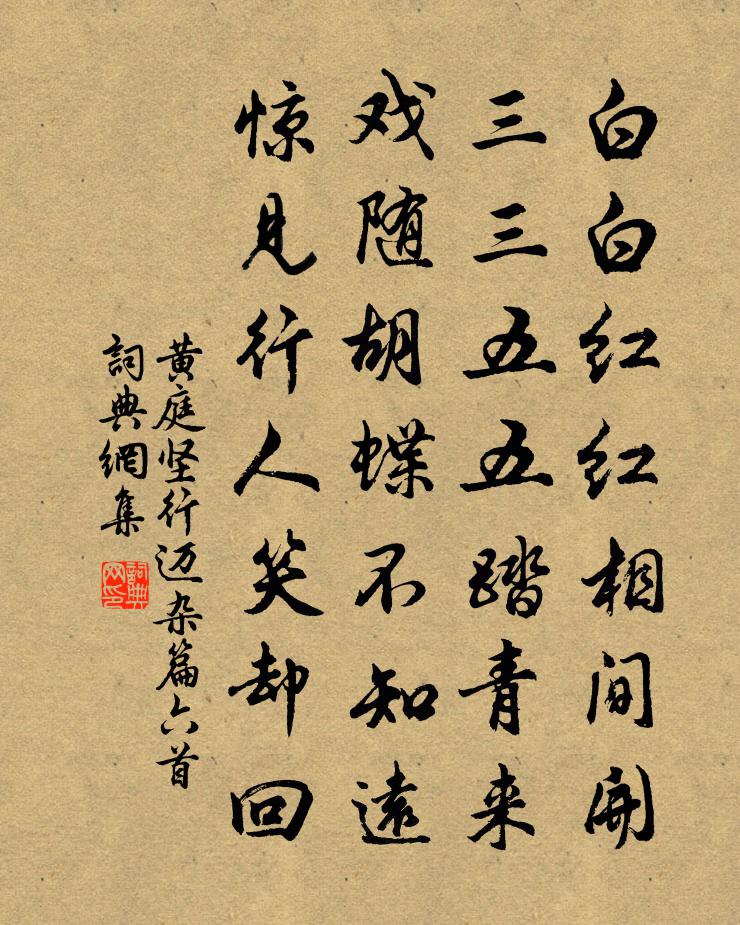 白白红红相间開
三三五五踏青来
戏随胡蝶不知遠
惊见行人笑却回
黄庭坚行迈杂篇六首
詞典網集
詞典网印